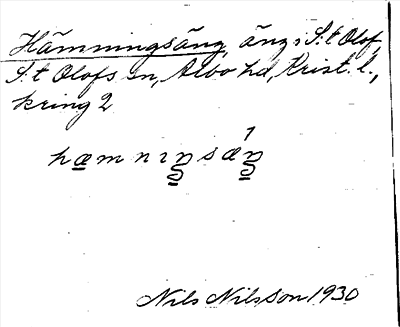 Hämningsäng, äng i S:t Olof,
S:t Olofs sn, Albo hd, Krist. l.,
kring 2
hæmnɪŋsæ̂ŋ
Nils Nilsson 1930